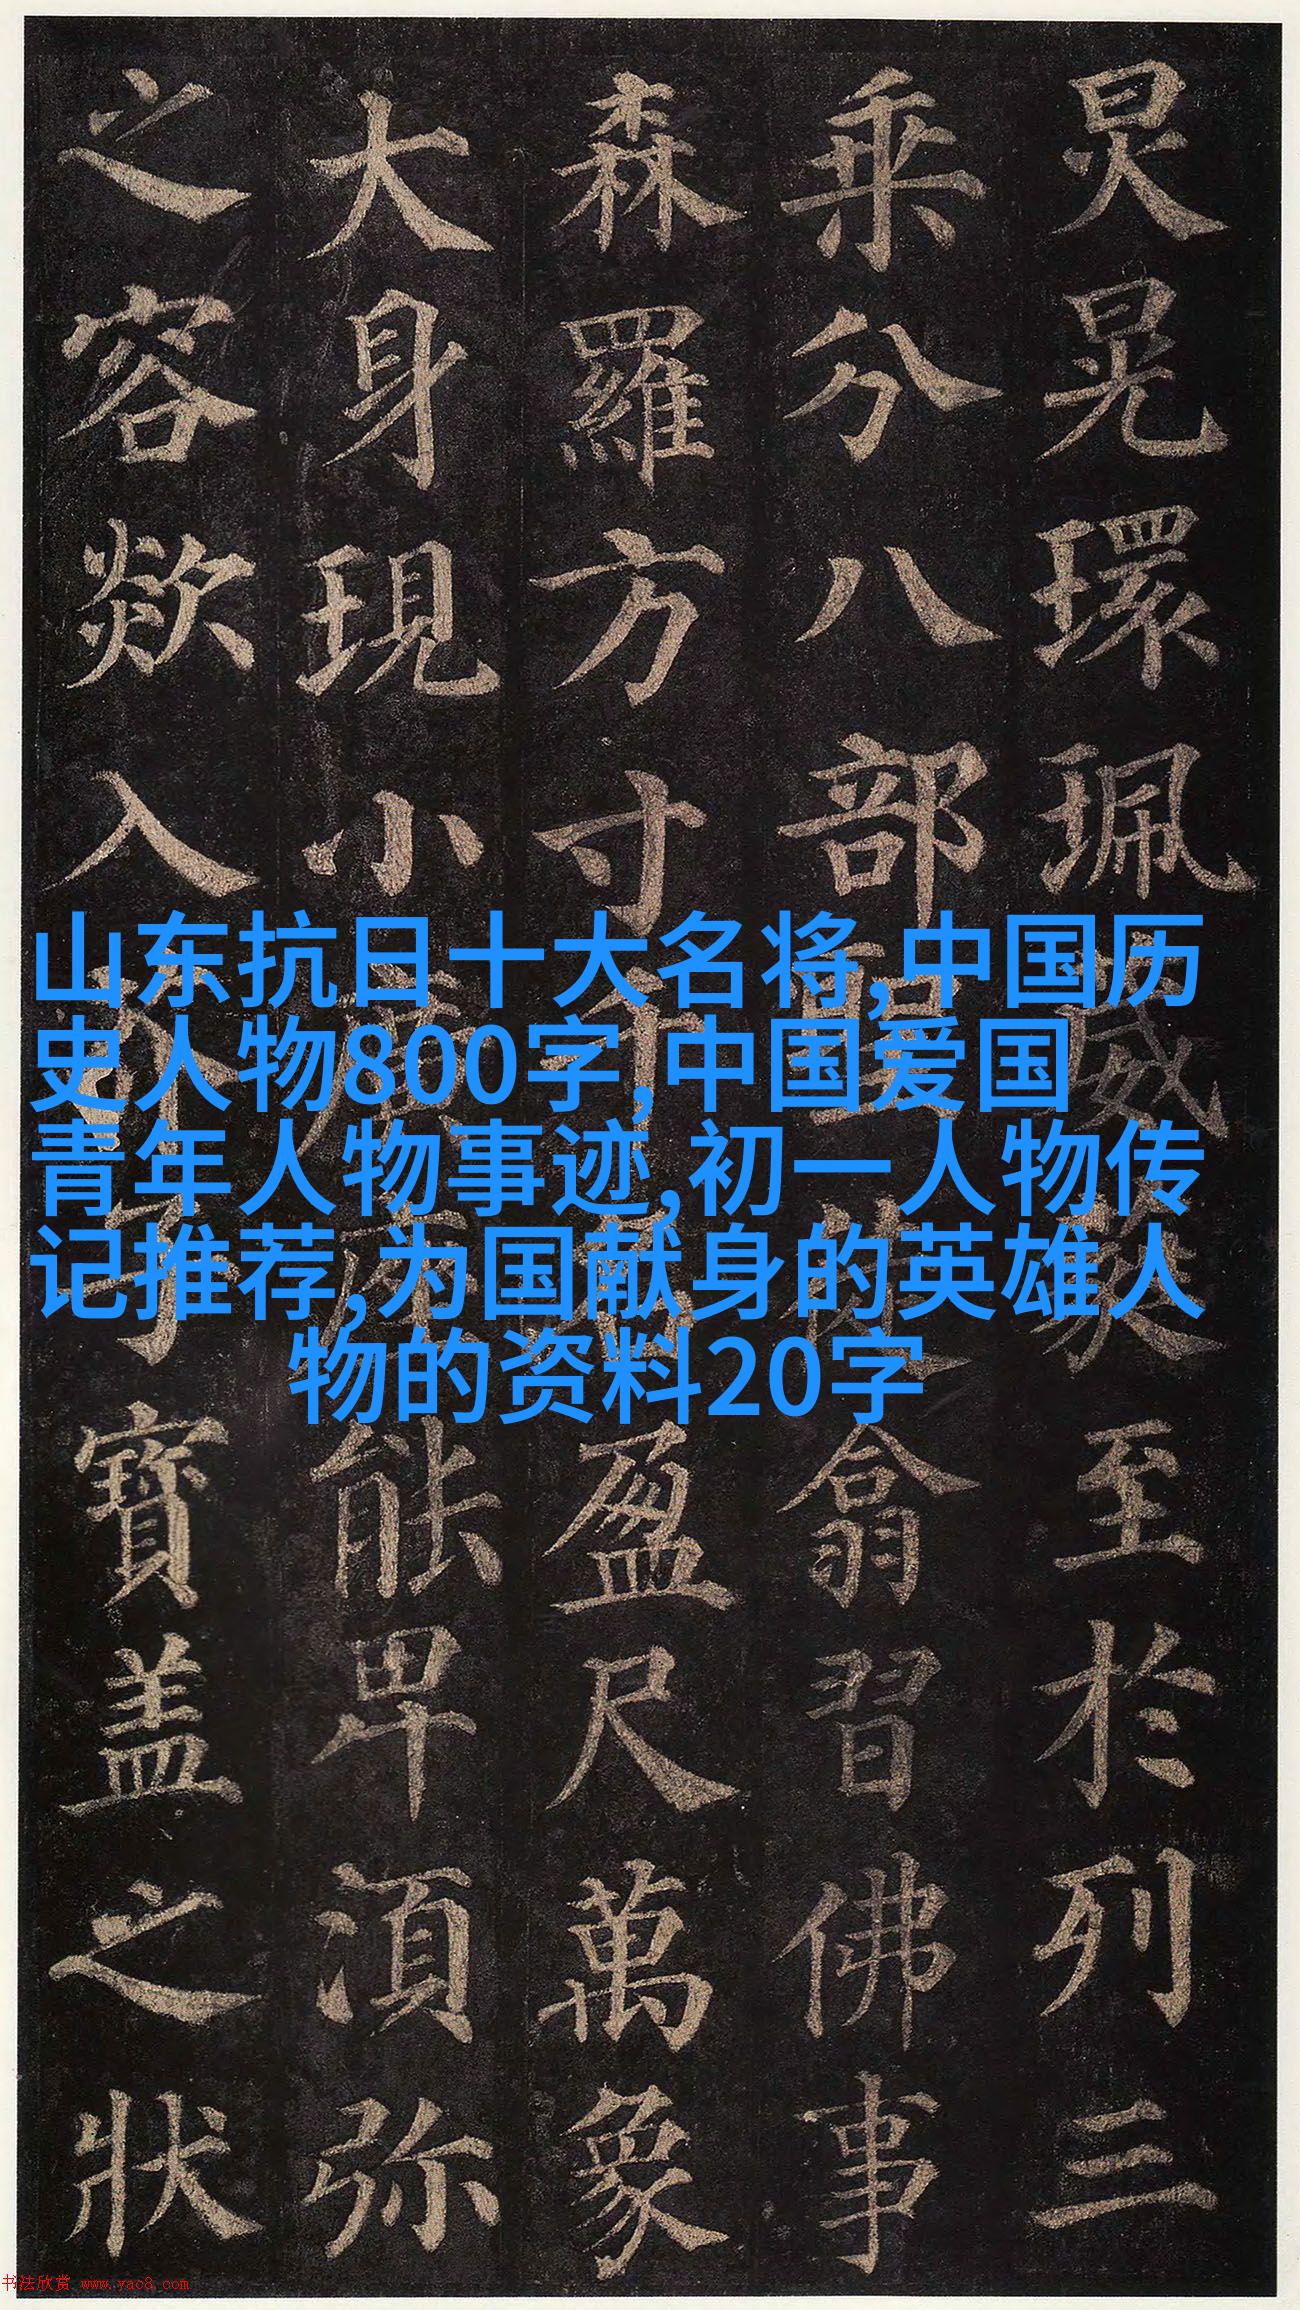 炅晃環珮葳蕤至於列三
乘分八部聖徒翕習佛事
森羅方寸千名盈尺萬象
大身現小廣座能卑須弥
之容欻入芥子寶盖之狀
山东抗日十大名将,中国历
史人物800字,中国爱国
青年人物事迹,初一人物传
记推荐,为国献身的英雄人
物的资料20字
书法欣赏 www.yac8.com